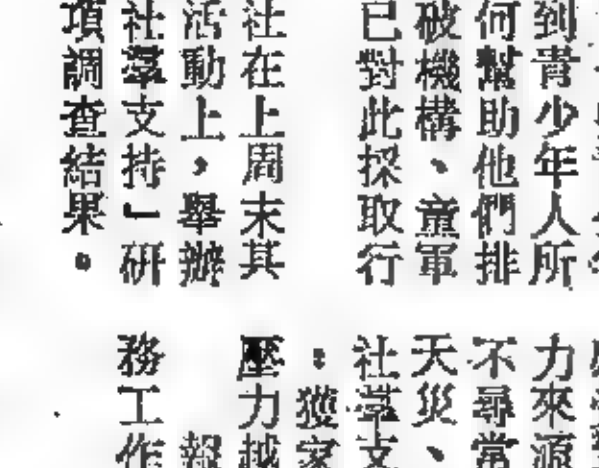 到青少年人所
何幫助他們排
破機構、童軍
已對此採取行
社在上周末其
活動上,舉辦
社羣支持」研
項調查結果。
力來源
不尋常
天災、
社羣支
:獲家
壓力越
報
務工作